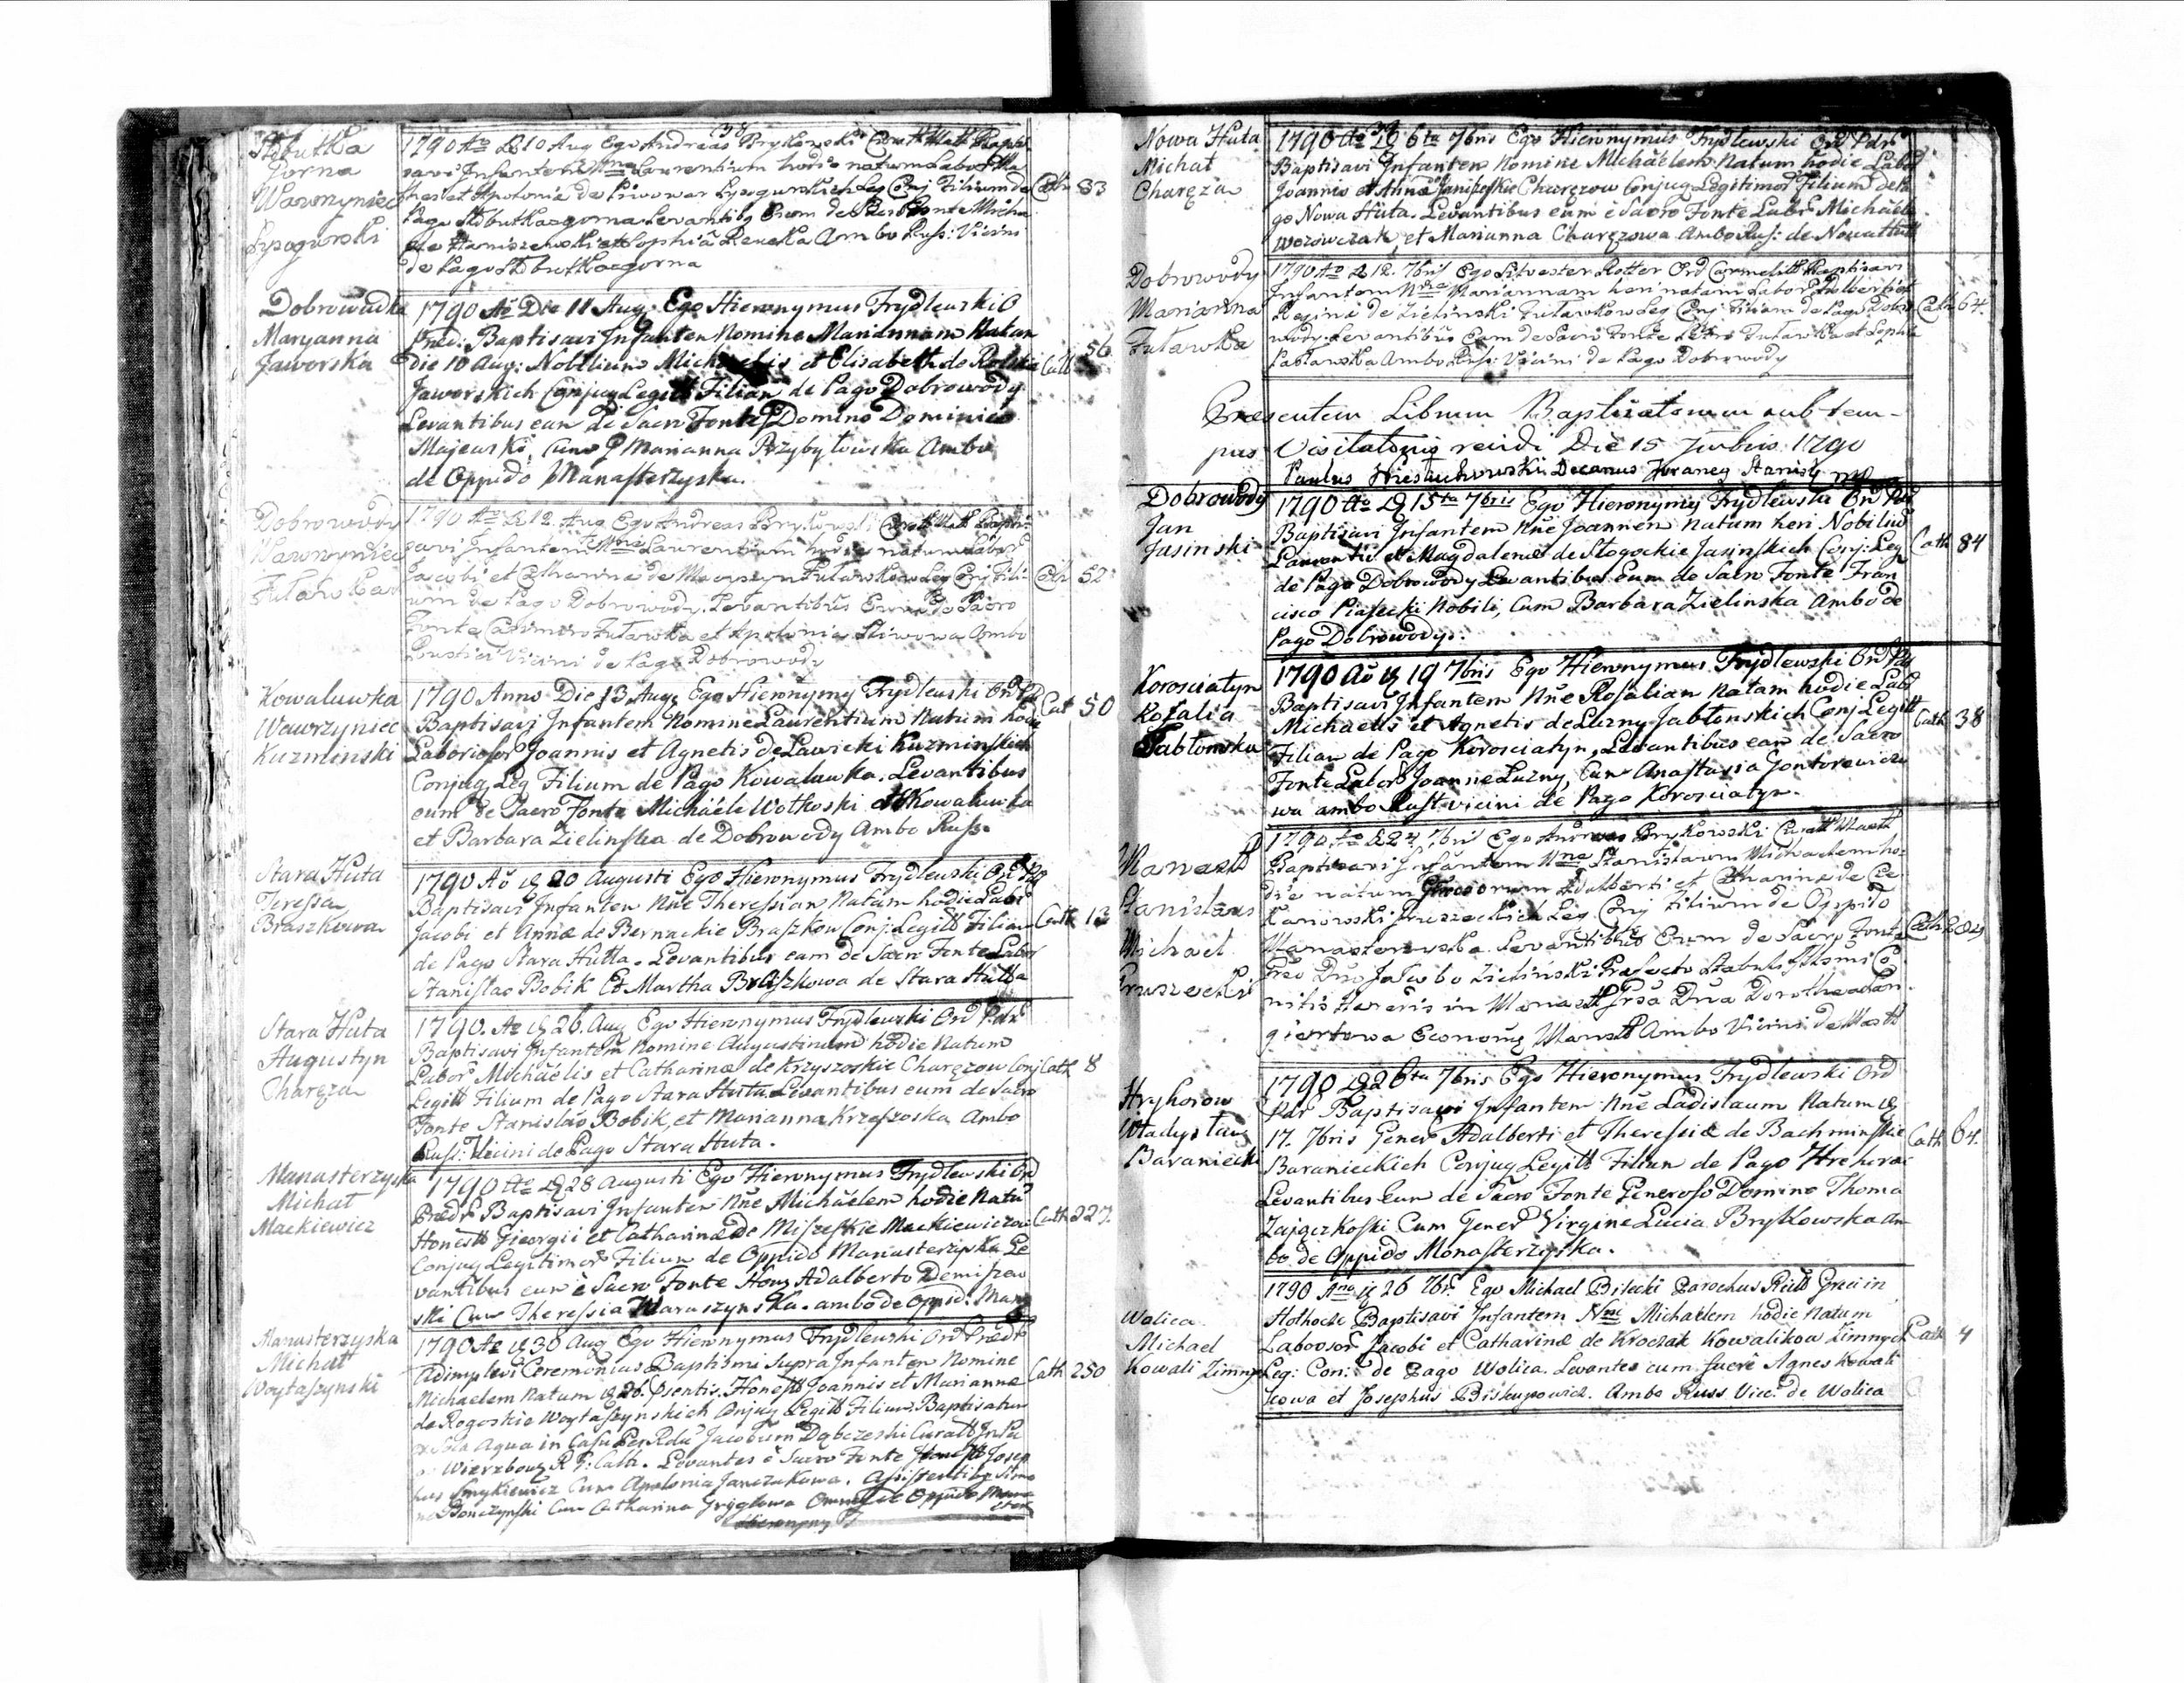 38
Słobutka
Gorna
Wawrzyniec
Łysogurski
1790 Ao D 10 Aug Ego Andreas Brykowski Curat Mast Bapti
savi Infantem Nne Laurentium hodie natum Labor Ma
thei et Apolonia de Piwowar Łysogurskich Leg Conj Filium de
Pago Słobutka gorna Levantibg Eum de Sacro Fonte Micha
ele Staniszewski et Sophia Rencka Ambo Russ: Vicini
de Pago Słobutka gorna
Cath 83
Dobrowudka
Maryanna
Jaworska
1790 Ao Die 11 Aug: Ego Hieronymus Frydlewski O
Pred: Baptisavi Infantem Nomine Mariannam Natam
die 10 Aug: Nobilium Michaelis et Elisabeth de Rolska
Jaworskich Conjug Legitt Filiam de Pago Dobrowody
Levantibus eam de Sacro Fonte Domino Dominico
Majewski, Cum Marianna Przybyłowska Ambo
de Oppido Manasterzyska.
Cath 56
Dobrowody
Wawrzyniec
Futawka
1790 Ao D 12. Aug Ego Andreas Brykowski Curatt Mast Bapti-
savi Infantem Nne Laurentium hodie natum Labor
Jacobi et Catharina de Futawkow Leg Conj Fili-
um de Pago Dobrowody. Levantibus Eum de Sacro
Fonte Casimiro Futawka et Apolonia Sliwowa Ambo
Rustici Vicini de Pago Dobrowody
Cath 52
Kowaluwka
Wawrzyniec
Kuzminski
1790 Anno Die 13 Aug: Ego Hieronymg Frydlewski Ord Pd
Baptisavi Infantem Nomine Laurentium Natum hodie
Laborioсor Joannis et Agnetis de Lawicki Kuzminskich
Conjug Leg Filium de Pago Kowaluwka. Levantibus
eum de Sacro Fonte Michaële Wotkoski de Kowaluwka
et Barbara Zielinska de Dobrowody Ambo Russ.
Cat 50
Stara Huta
Teressa
Braszkowa
1790 Ao D 20 Augusti Ego Hieronymus Frydlewski Ord Pd
Baptisavi Infantem Nne Theressiam Natam hodie Labr
Jacobi et Annæ de Bernackie Braszkow Conj: Legitt Filiam
de Pago Stara Hutta. Levantibus eam de Sacro Fonte Labor
Stanislao Bobik Et Martha Braszkowa de Stara Hutta
Cath 13
Stara Huta
Augustyn
Charęza
1790. Ao D 26. Aug Ego Hieronymus Frydlewski Ord Pdr
Baptisavi Infantem Nomine Augustinum hodie Natum
Labor Michaëlis et Catharinæ de Krzyszoskie Charęzow Conj
Legitt Filium de Pago Stara Hutta. Levantibus eum de Sacro
Fonte Stanislao Bobik, et Marianna Krzeszoska Ambo
Russ: Vicini de Pago Stara Huta.
Cath 8
Manasterzyska
Michał
Mackiewicz
1790 Ao D 28 Augusti Ego Hieronymus Frydlewski Ord
Prædr Baptisavi Infantem Nne Michaëlem hodie Natu
Honestt Gieorgii et Catharinæ de Miszeskie Mackiewiczow
Conjug Legitimor Filium de Oppido Manasterzyska Le
vantibus eum è Sacro Fonte Hong Adalberto Demiszew
ski Cum Theressia Waraszynska. ambo de Oppid: Mans
Cath 227.
Manasterzyska
Michał
Woytaszynski
1790 Ao D 30 Aug Ego Hieronymus Frydlewski Ord Predr
Adimplevi Ceremonias Baptismi Supra Infantem Nomine
Michaelem Natum D 26. Psentis. Honestt Joannis et Mariannæ
de Rogoskie Woytaszynskich Conjug Legitt Filium Baptisatum
Sola Aqua in Casu Per Rdu Jacobum Dąbczeski Curatt In Pa
Wierzbouz R: G: Cath. Levantes è Sacro Fonte Honestt Josep
hus Smykiewicz Cum Apolonia Janczukowa. Assistentibg Simo
ne Bonczynski Cum Catharina Gryglowa Omnes de Oppido Mana
Cath 250
39
Nowa Huta
Michał
Charęza
1790 Ao D 6ta 7bris Ego Hieronymus Frydlewski Ord Pdr
Baptisavi Infantem Nomine Michaëlem Natum hodie Labor
Joannis et Anna de Janiszeskie Charęzow Conjug Legitimor Filium de Pa
go Nowa Huta. Levantibus eum è Sacro Fonte Labr Michaële
Wozowczak, et Marianna Charęzowa Ambo Rus: de Nowa Hutt
Dobrowody
Marianna
Futawka
1790 Ao D 12. 7bris Ego Silvester Rotter Ord Carmelitt Baptisavi
Infantem Nne Mariannam heri natam Labor Adalberti et
Regina de Zielinski Futawkow Leg Conj Filiam de Pago Dobro
wody. Levantibus Eam de Sacro Fonte Petro Futawka et Sophia
Ambo Russ: Vicini de Pago Dobrowody
Cath 64.
Præsentem Librum Baptisatorum sub tem-
pus Visitationis revidi Die 15 7mbris 1790
Paulus Decanus
Dobrowody
Jan
Jasinski
1790 Ao D 15ta 7bris Ego Hieronymg Frydlewski Ord Pdr
Baptisavi Infantem Nne Joannem Natum heri Nobiliu
Laurentii et Magdalenæ de Stogockie Jasinskich Conj: Leg
de Pago Dobrowody Levantibus Eum de Sacro Fonte Fran
cisco Piasecki Nobili, Cum Barbara Zielinska Ambo de
Pago Dobrowody.
Cath 84
Korosciatyn
Rozalia
Jabłonska
1790 Ao D 19 7bris Ego Hieronymus Frydlewski Ord Pdr
Baptisavi Infantem Nne Rosaliam Natam hodie Labr
Michaelis et Agnetis de Luzny Jabłonskich Conj Legitt
Filiam de Pago Korosciatyn, Levantibus eam de Sacro
Fonte Labor Joanne Luzny, Cum Anastasia Gontorewiczo
wa ambo Rust vicini de Pago Korosciatyn.
Cath 38
Manastt
Stanislaus
Michael
Gruszecki
1790 Ao D 24 7bris Ego Andreas Brykowski Curatt Mastt
Baptisavi Infantem Nne Stanislaum Michaelem ho-
die natum Generosorum Adalberti et Catharina de Cie
kanowski Gruszeckich Leg Conj Filium de Oppido
Manasterzyska. Levantibus Eum de Sacro Fonte
Dno Jakubo Zielinski Præfecto Stabuli Co
mitis Heneris in Manastt Dna Dorothea Lan
giertowa Economg Manstt Ambo Vicini de Mastt
Hryhorow
Władysław
Baraniecki
1790 D 26ta 7bris Ego Hieronymus Frydlewski Ord
Pdr Baptisavi Infantem Nne Ladislaum Natum D
17. 7bris Gener Adalberti et Theressiæ de Bachminskie
Baranieckich Conjug Legitt Filium de Pago Hrehorow
Levantibus Eum de Sacro Fonte Generoso Domino Thoma
Zajączkoski Cum Gener Virgine Lucia Brykowska am
bo de Oppido Monasterzyska.
Cath 64.
Wolica
Michael
Kowali Zimny
1790 Ano D 26 7br. Ego Michael Bilecki Parochus Ritt Graeci in
Hothocze Baptisavi Infantem Nne Michaelem hodie natum
Laborsor Jacobi et Catharinæ de Kroczak Kowalikow Zimnych
Leg: Con: de Pago Wolica. Levantes eum fuere Agnes Kowali
kowa et Josephus Biskupowicz. Ambo Russ Vic: de Wolica
Cath 4